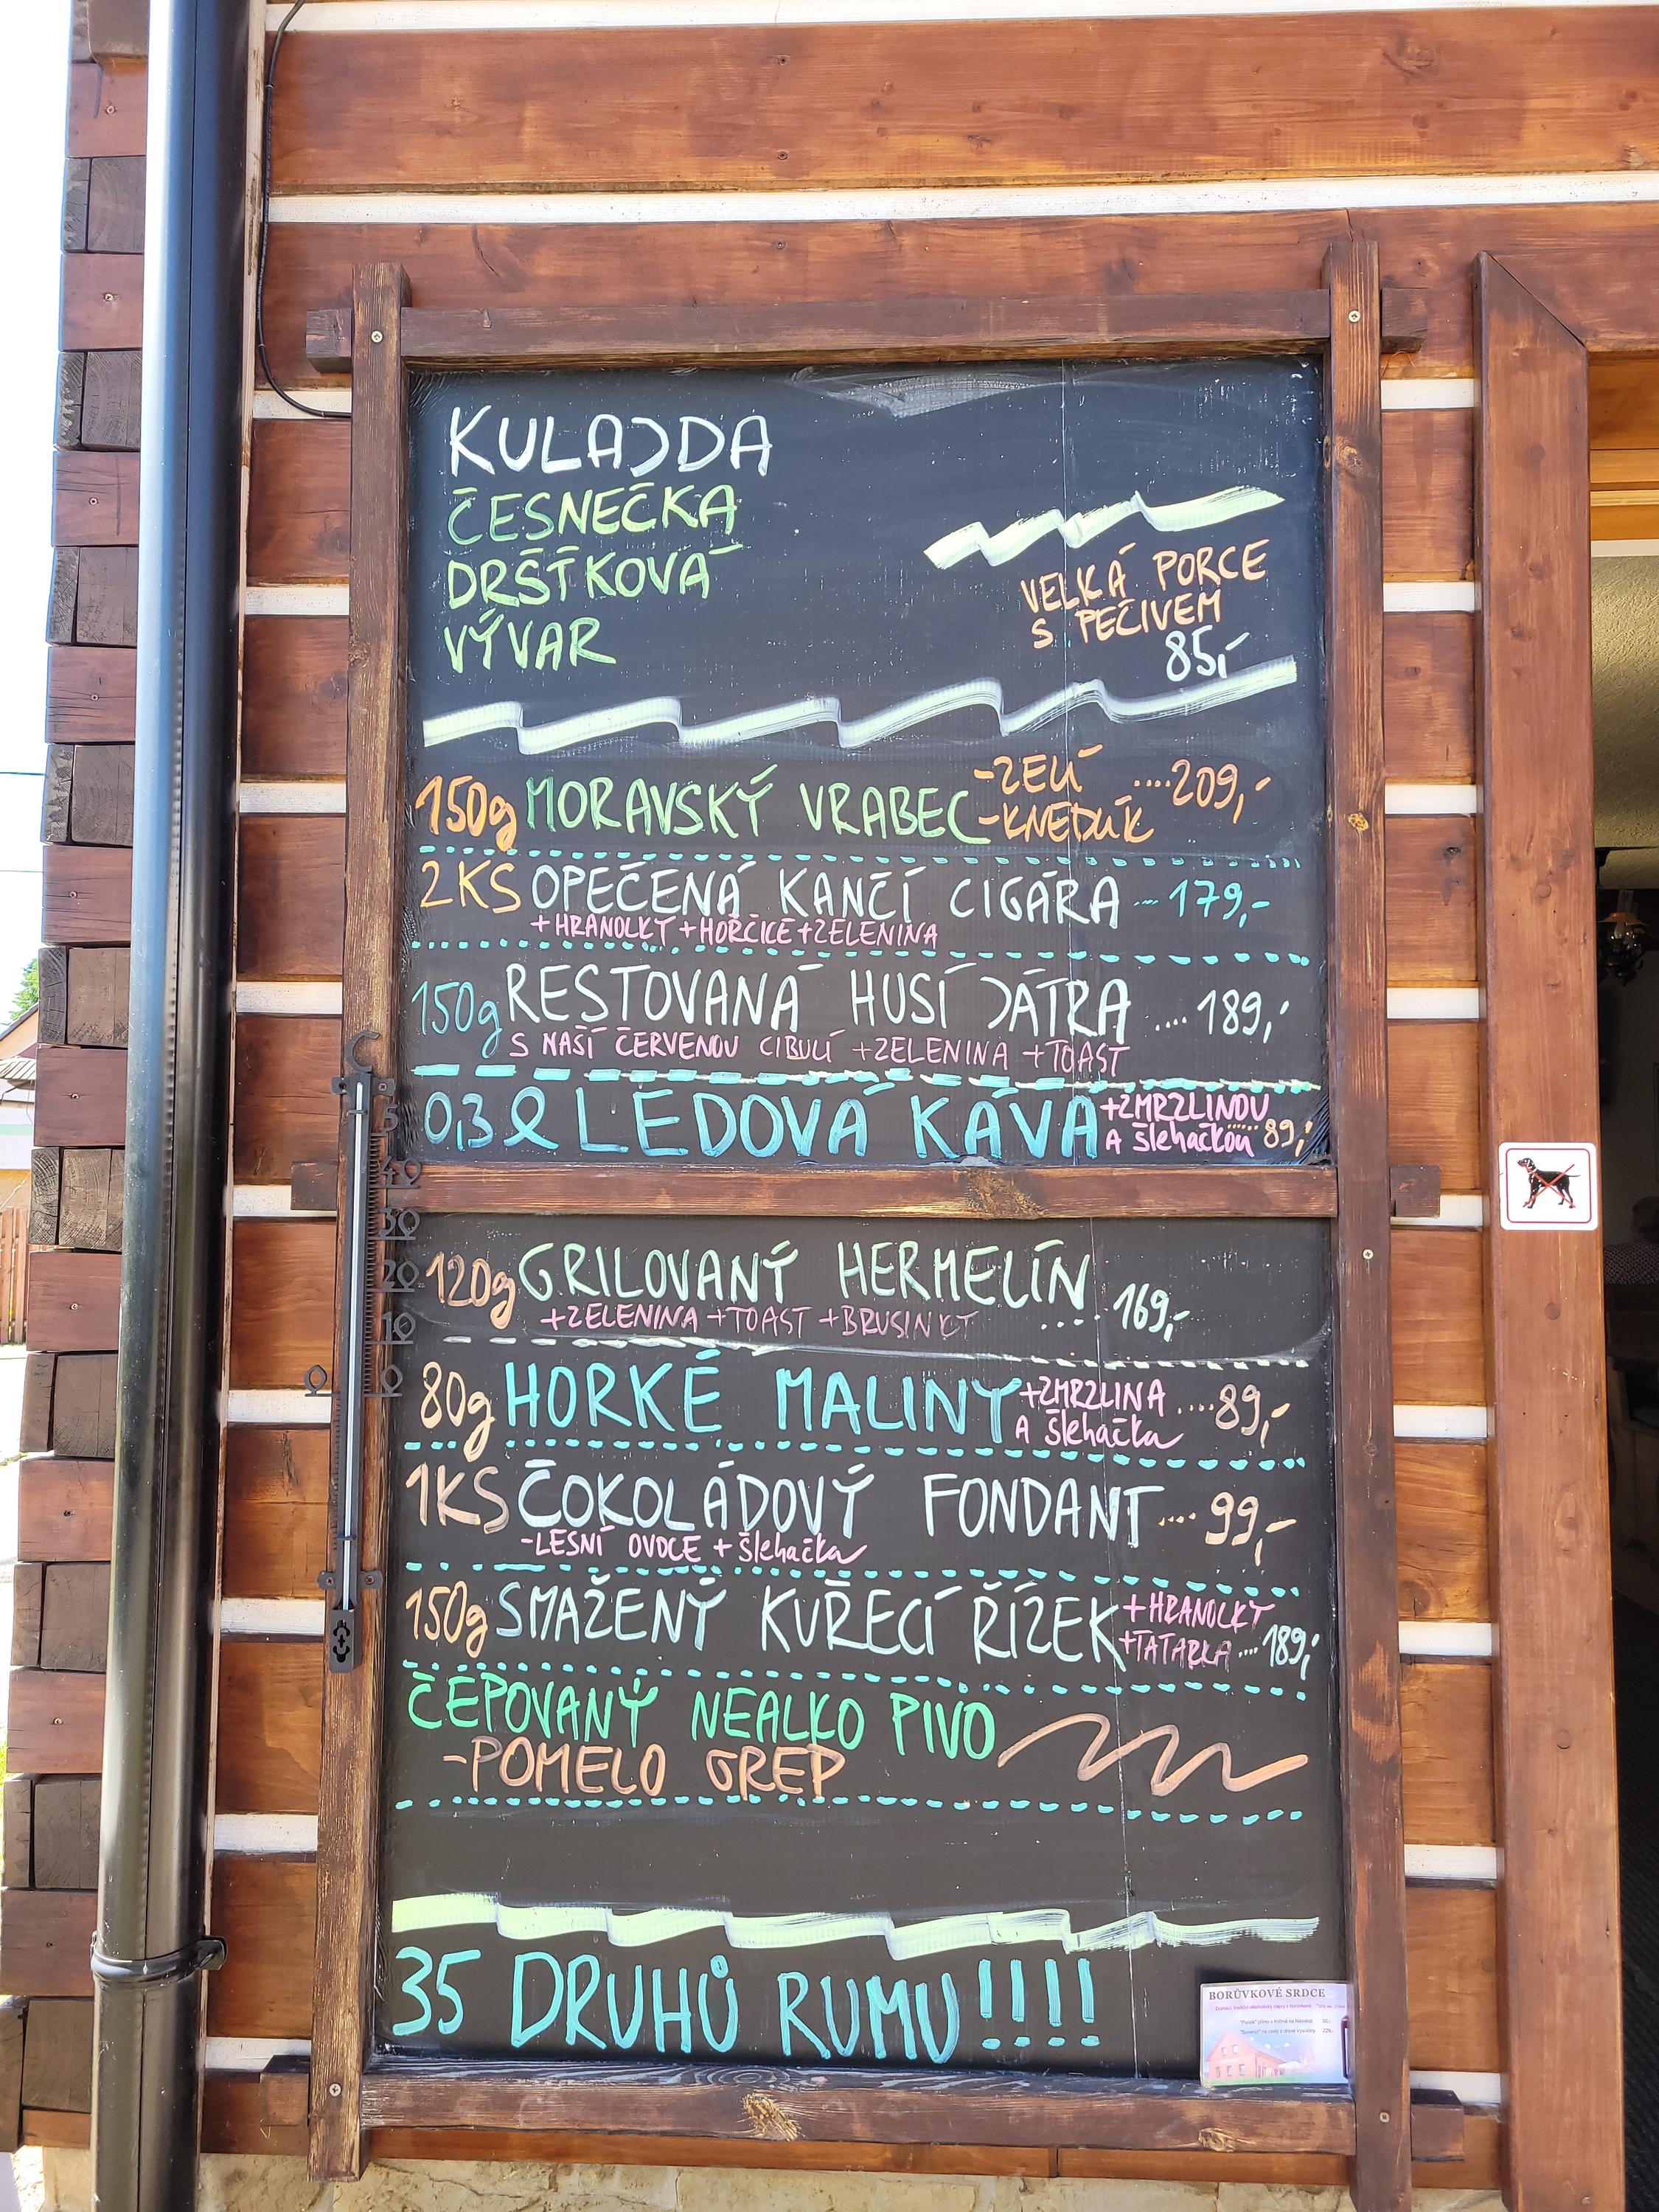 KULAJDA
ČESNEČKA
DRŠŤKOVÁ
VÝVAR
VELKÁ PORCE
S PEČIVEM
85,-
150g MORAVSKÝ VRABEC -ZELÍ ....209,-
-KNEDLÍK
2KS OPEČENÁ KANČÍ CIGÁRA ... 179,-
+HRANOLKY +HOŘČICE +ZELENINA
150g RESTOVANÁ HUSÍ JÁTRA .... 189,-
S NAŠÍ ČERVENOU CIBULÍ +ZELENINA +TOAST
0,3l LEDOVÁ KÁVA +ZMRZLINOU
A šlehačkou ..... 89,-
120g GRILOVANÝ HERMELÍN .... 169,-
+ZELENINA +TOAST +BRUSINKY
80g HORKÉ MALINY +ZMRZLINA
A šlehačka ....89,-
1KS ČOKOLÁDOVÝ FONDANT .... 99,-
-LESNÍ OVOCE + šlehačka
150g SMAŽENÝ KUŘECÍ ŘÍZEK +HRANOLKY
+TATARKA .... 189,-
ČEPOVANÝ NEALKO PIVO
-POMELO GREP
35 DRUHŮ RUMU!!!!
BORŮVKOVÉ SRDCE
C
5
40
30
20
10
0 0